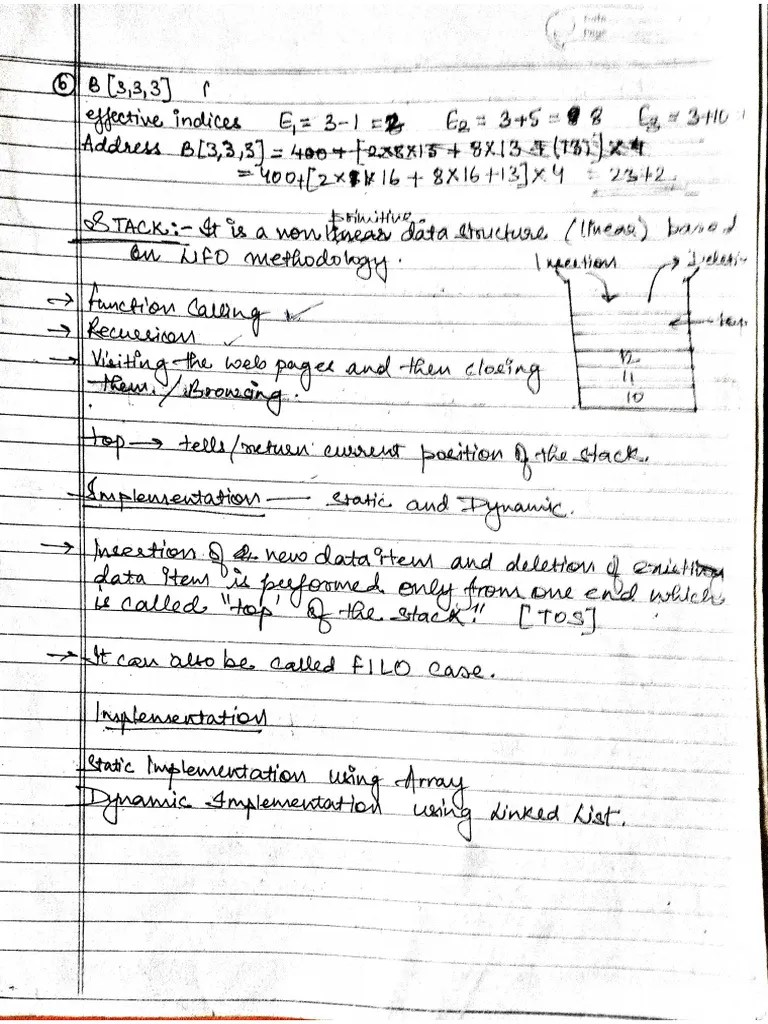 Date
Page
⑥ B[3,3,3]
effective indices E₁ = 3-1 = 2 E₂ = 3+5 = 8 E₃ = 3+10
Address B[3,3,3] = 400+[2×8×13 + 8×13 + (13)]×4
= 400+[2×8×16 + 8×16+13]×4 = 23+2
STACK:- It is a non primitive data structure (linear) based
on LIFO methodology.
Insertion
→ Function Calling ✓
→ Recursion ✓
→ Visiting the web pages and then closing
them / Browsing.
12
11
10
top → tells/return current position of the stack.
Implementation — static and Dynamic.
→ Insertion of new data item and deletion of existing
data item is performed only from one end which
is called "top' of the stack." [TOS]
→ It can also be called FILO case.
Implementation
Static Implementation using Array
Dynamic Implementation using Linked List.